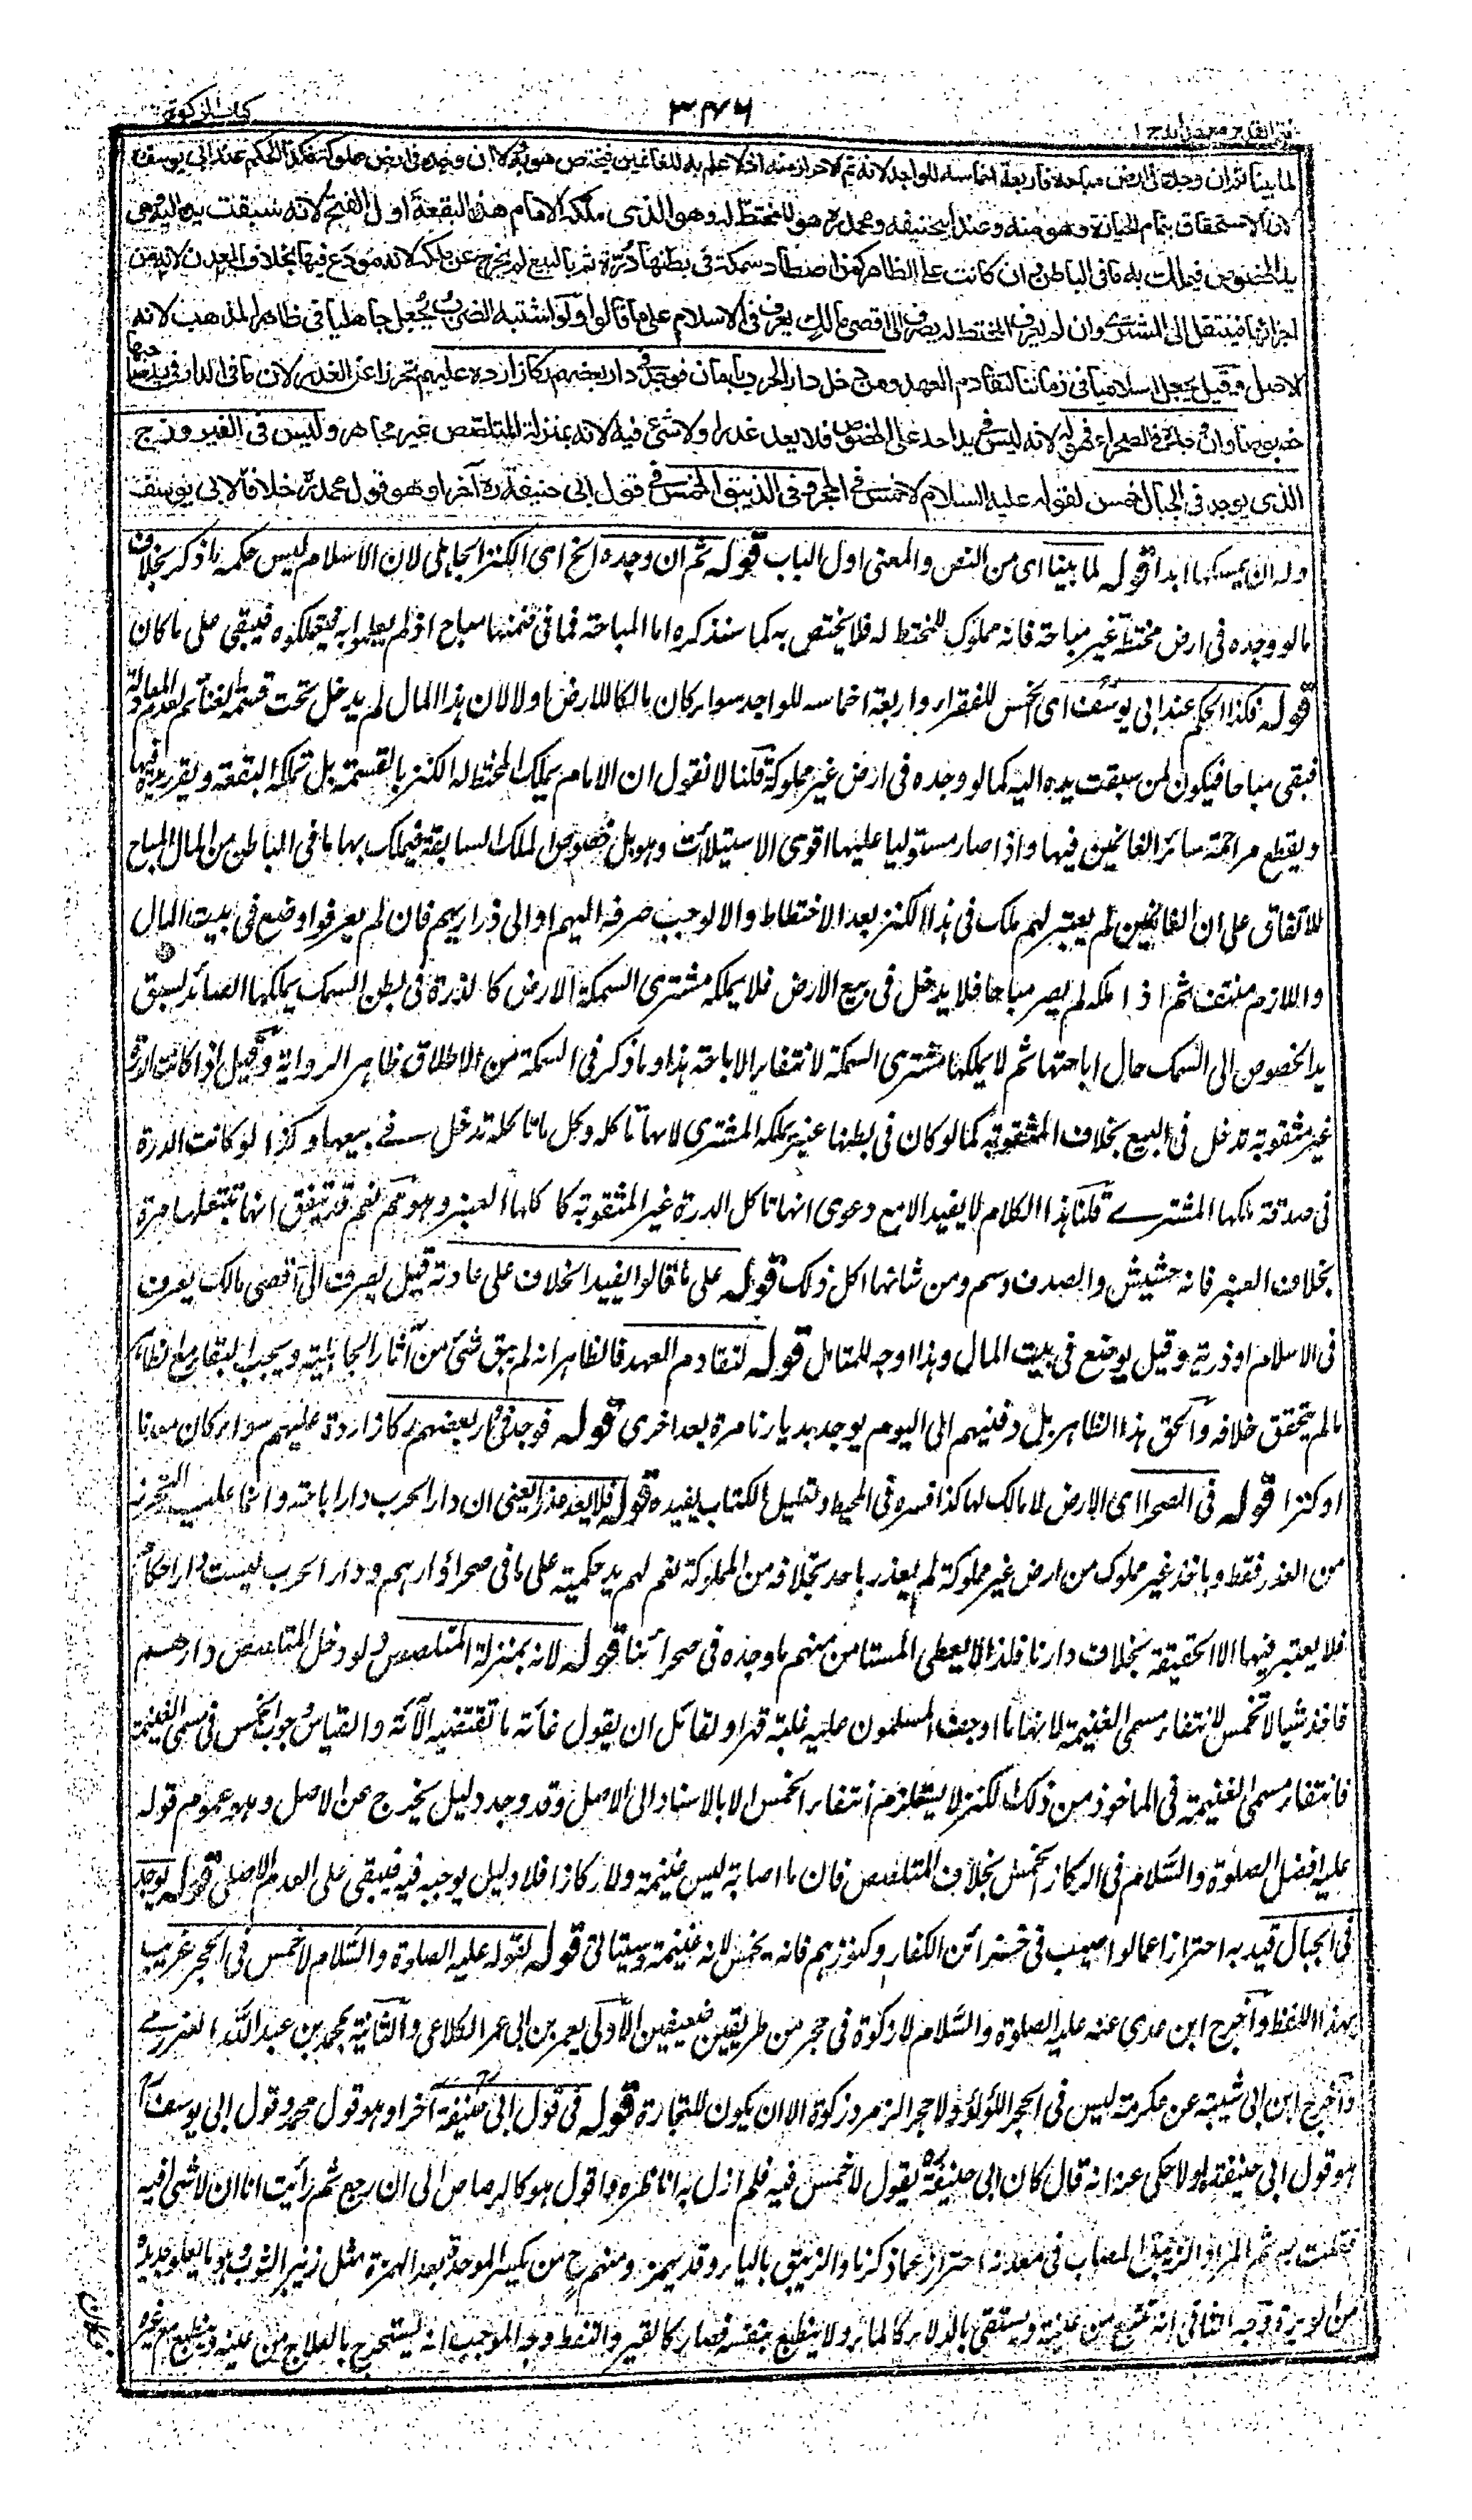 فتح القدير مع هداية ج ١
٣٤٦
كتاب الزكوة
لما بينا ثم ان وجده في ارض مباحة فاربعة اخماسه للواجد لانه تم الاحراز منه اذ لا علم به للغانمين فيختص هو به وان وجده في ارض مملوكة فكذا الحكم عند ابي يوسف
لان الاستحقاق بتمام الحيازة وهو منه وعند ابي حنيفة ومحمد هو للمختط له وهو الذي ملكه الامام هذه البقعة اول الفتح لانه سبقت يده اليه وهي
يد الخصوص فيملك به ما في الباطن وان كانت على الظاهر كمن اصطاد سمكة في بطنها درة ثم بالبيع لم يخرج عن ملكه لانه مودع فيها بخلاف المعدن لانه من
اجزائها فينتقل الى المشتري وان لم يعرف المختط له يصرف الى اقصى مالك يعرف في الاسلام على ما قالوا ولو اشتبه الضرب يجعل جاهليا في ظاهر المذهب لانه
الاصل وقيل يجعل اسلاميا في زماننا لتقادم العهد ومن دخل دار الحرب بامان فوجد في دار بعضهم ركازا رده عليهم تحرزا عن الغدر لان ما في الدار في يد صاحبها
خصوصا وان وجده في الصحراء فهو له لانه ليس في يد احد على الخصوص فلا يعد غدرا ولا شئ فيه لانه بمنزلة المتلصص غير مجاهر وليس في الفيروزج
الذي يوجد في الجبال خمس لقوله عليه السلام لا خمس في الحجر وفي الزيبق الخمس في قول ابي حنيفة ره آخرا وهو قول محمد ره خلافا لابي يوسف
وله ان يمسكها ابدا قوله لما بينا اى من النص والمعنى اول الباب قوله ثم ان وجده الخ اى الكنز الجاهلي لان الاسلام ليس حكمه ما ذكر بخلاف
ما لو وجده في ارض مختطة غير مباحة فانه مملوك للمختط له فلا يختص به كما سنذكره اما المباحة فما في ضمنها مباح اذ لم يعلموا به فيتملكوه فيبقى على ما كان
قوله فكذا الحكم عند ابي يوسف اى الخمس للفقراء واربعة اخماسه للواجد سواء كان مالكا للارض او لا لان هذا المال لم يدخل تحت قسمة الغنائم لعدم المعادلة
فبقى مباحا فيكون لمن سبقت يده اليه كما لو وجده في ارض غير مملوكة قلنا لا نقول ان الامام يملك المختط له الكنز بالقسمة بل تملكه البقعة ويقرر يده فيها
ويقطع مزاحمة سائر الغانمين فيها واذا صار مستوليا عليها اقوى الاستيلاآت وهو بل خصوص الملك السابقة فيملك بها ما في الباطن من المال المباح
للاتفاق على ان الغانمين لم يعتبر لهم ملك في هذا الكنز بعد الاختطاط والا لوجب صرفه اليهم او الى ذراريهم فان لم يعرفوا وضع في بيت المال
واللازم منتف ثم اذا ملكه لم يصر مباحا فلا يدخل في بيع الارض فلا يملكه مشتري السمكة الارض كالدرة في بطن السمك يملكها الصائد لسبق
يد الخصوص الى السمك حال اباحتها ثم لا يملكها مشترى السمكة لانتفاء الاباحة هذا وما ذكر في السمكة من الاطلاق ظاهر الرواية وقيل اذا كانت الدرة
غير مثقوبة تدخل في البيع بخلاف المثقوبة كما لو كان في بطنها عنبر يملكه المشترى لانها تاكله وكل ما تاكله تدخل في بيعها وكذا لو كانت الدرة
في صدفة ملكها المشتري قلنا هذا الكلام لا يفيد الا مع دعوى انها تاكل الدرة غير المثقوبة كاكلها العنبر وهو ممنوع نعم قد يتفق انها تبتلعها مرة
بخلاف العنبر فانه حشيش والصدف دسم ومن شانها اكل ذلك قوله على ما قالوا يفيد الخلاف على عادته قيل يصرف الى اقصى مالك يعرف
في الاسلام او ذريته وقيل يوضع في بيت المال وهذا اوجه للمتامل قوله لتقادم العهد فالظاهر انه لم يبق شئ من آثار الجاهلية ويجب البقاء مع الظاهر
ما لم يتحقق خلافه والحق منع هذا الظاهر بل دفينهم الى اليوم يوجد بديارنا مرة بعد اخرى قوله فوجد في دار بعضهم ركازا رده عليهم سواء كان معدنا
او كنزا قوله في الصحرا اى الارض لا مالك لها كذا فسره في المحيط وتعليل الكتاب يفيده قوله فلا يعد غدرا يعنى ان دار الحرب دار اباحة وانما عليه التحرز
من الغدر فقط وباخذ غير مملوك من ارض غير مملوكة لم يغدر باحد بخلافه من المملوكة نعم لهم يد حكمية على ما في صحراء دارهم ودار الحرب ليست دار احكام
فلا يعتبر فيها الا الحقيقة بخلاف دارنا فلذا لا يعطى المستامن منهم ما وجده في صحرائنا قوله لانه بمنزلة المتلصص ولو دخل المتلصص دارهم
فاخذ شيا لا تخمس لانتفاء مسمى الغنيمة لانها ما اوجف المسلمون عليه غلبة قهرا ولقائل ان يقول غاية ما تقتضيه الآية والقياس وجوب الخمس في مسمى الغنيمة
فانتفاء مسمى الغنيمة في الماخوذ من ذلك الكنز لا يستلزم انتفاء الخمس الا بالاسناد الى الاصل وقد وجد دليل يخرج عن الاصل وهو عموم قوله
عليه افضل الصلوة والسلام في الركاز الخمس بخلاف المتلصص فان ما اصابه ليس غنيمة ولا ركازا فلا دليل يوجبه فيه فيبقى على العدم الاصلى قوله يوجد
في الجبال قيد به احترازا عما لو اصيب في خزائن الكفار وكنوزهم فانه يخمس لانه غنيمة وسيتاتى قوله لقوله عليه الصلوة والسلام لا خمس في الحجر غريب
بهذا اللفظ وآخرج ابن عدي عنه عليه الصلوة والسلام لا زكوة في حجر من طريقين ضعيفين الاولى بعمر بن ابي عمر الكلاعي والثانية بمحمد بن عبد الله العزرمي
وآخرج ابن ابى شيبة عن عكرمة ليس في الحجر اللؤلؤ ولا حجر الزمرد زكوة الا ان يكون للتجارة قوله في قول ابي حنيفة آخرا وهو قول محمد وقول ابي يوسف
هو قول ابي حنيفة اولا حكى عنه انه قال كان ابي حنيفة يقول لا خمس فيه فلم ازل به اناظره واقول هو كالرصاص الى ان رجع ثم رأيت انا ان لا شئ فيه
فقلت به ثم المراد الزيبق المصاب في معدنه احترازا عما ذكرنا والزيبق بالياء وقد يهمز ومنهم ح من يكسر الموحدة بعد الهمزة مثل زئبر الثوب وهو ما يعلو جديده
من الوبرة وجه النافي انه ينبع من عينه ويستقي بالدلاء كالماء ولا ينطبع بنفسه فصار كالقير والنفط وجه الموجب انه يستخرج بالعلاج من عينه وينطبع مع غيره